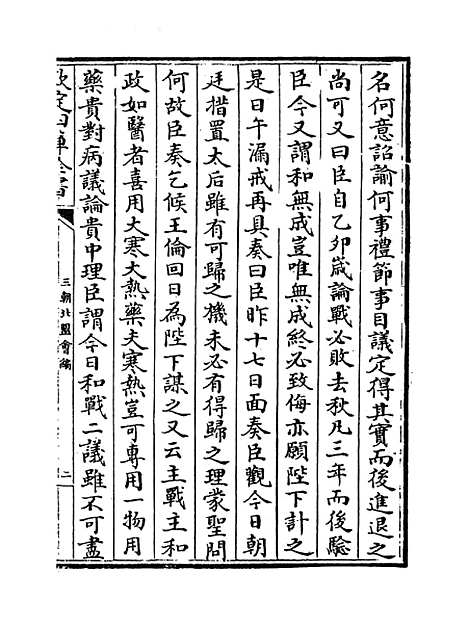 名何意詔諭何事禮節事目議定得其實而後進退之
尚可又曰臣自乙夘嵗論戰必敗去秋凡三年而後驗
臣今又謂和無成豈唯無成終必致侮亦願陛下計之
是日午漏戒再具奏曰臣昨十七日面奏臣觀今日朝
廷措置太后雖有可歸之機未必有得歸之理蒙聖問
何故臣奏乞候王倫回日為陛下謀之又云主戰主和
政如醫者喜用大寒大熱藥夫寒熱豈可專用一物用
藥貴對病議論貴中理臣謂今日和戰二議雖不可盡
欽定四庫全書
三朝北盟會編
二